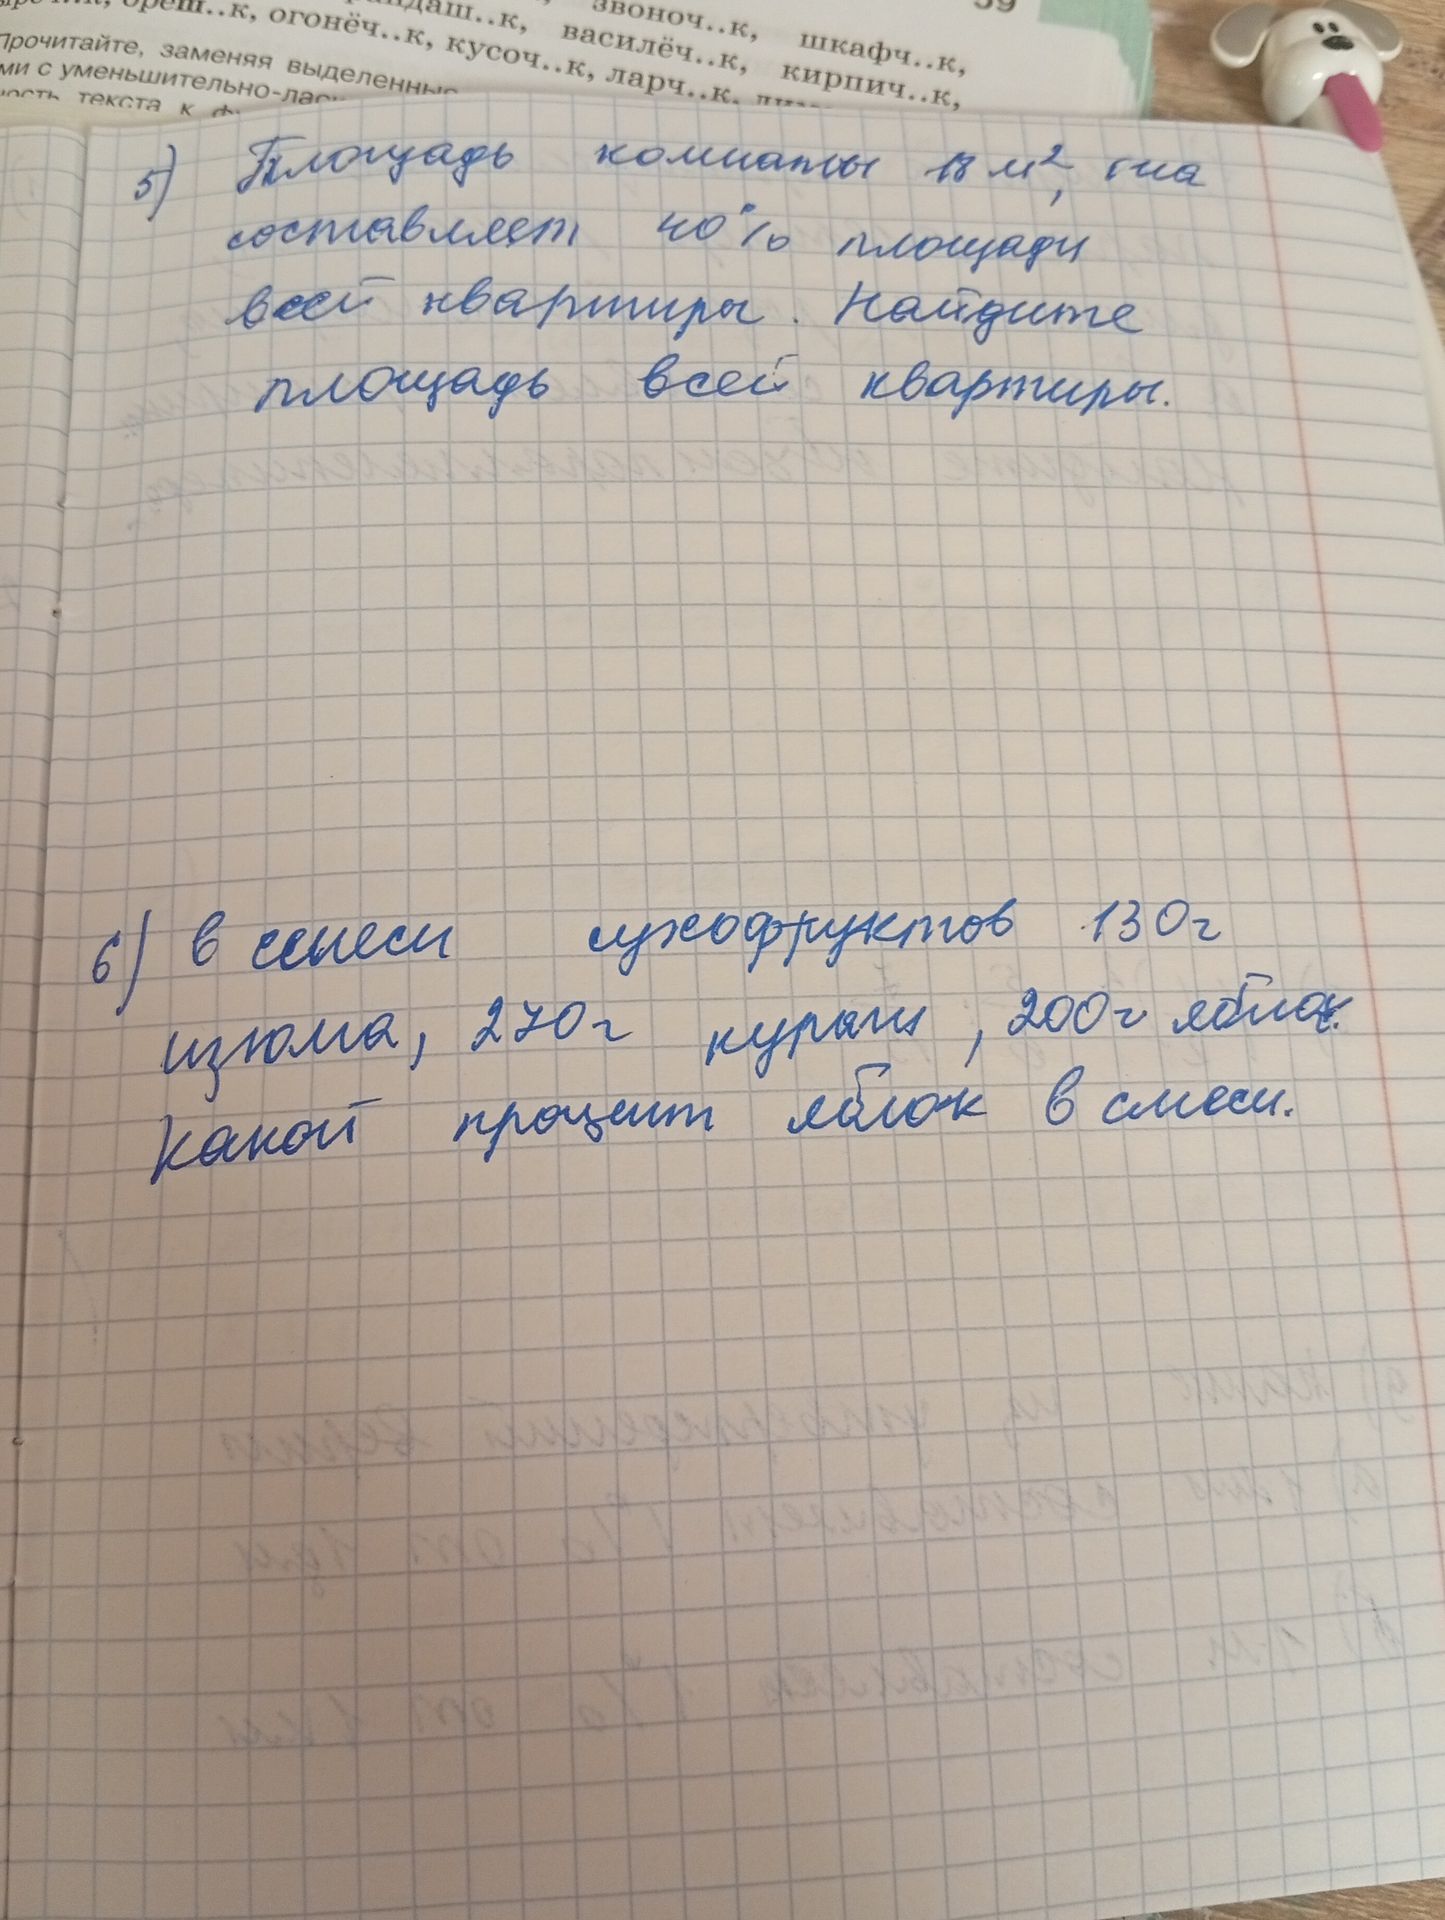 звоноч..к, шкафч..к,
ореш..к, огонёч..к, кусоч..к, василёч..к, кирпич..к,
ларч..к,
Прочитайте, заменяя выделенные
ми с уменьшительно-лас
ность текста к
59
5) Площадь комнаты 18 м², она
составляет 40% площади
всей квартиры. Найдите
площадь всей квартиры.
6) В смеси сухофруктов 130г
изюма, 270г кураги, 200г яблок.
Какой процент яблок в смеси.